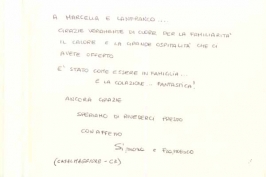 A MARCELLA E GIANFRANCO...
GRAZIE VERAMENTE DI CUORE PER LA FAMILIARITA'
IL CALORE E LA GRANDE OSPITALITÀ CHE CI
AVETE OFFERTO
E' STATO COME ESSERE IN FAMIGLIA...
E LA COLAZIONE... FANTASTICA!
ANCORA GRAZIE
SPERIAMO DI RIVEDERCI PRESTO
CON AFFETTO
Simona e Francesco
(CASALMAGGIORE - CR)